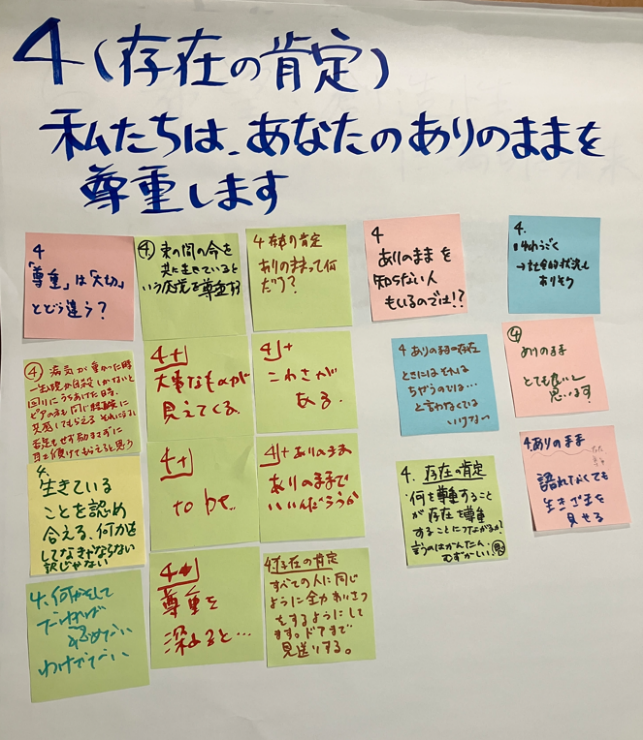 4(存在の肯定)
私たちは、あなたのありのままを
尊重します
4
「尊重」は「大切」
とどう違う?
④ 束の間の今を
共に生きていると
いう感覚を尊重する
4 存在の肯定
ありのままって何
だろう?
4
ありのままを
知らない人
もいるのでは!?
4.
→社会的状況も
ありそう
④ 病気が重かった時
一生懸命
回りにうちあけた時、
ピアの方も同じ経験に
共感してもらえる それぐらい
否定もせず励まさずに
耳を傾けてもらえると思う
4+
大事なものが
見えてくる
4+
こわさが
ある。
4 ありのままの存在
ときにはそれは
ちがうのでは…
と言わなくては
いけない
④
ありのまま
とても良いと
思います
4.
生きている
ことを認め
合える、何かを
してなきゃならない
訳じゃない
4+
to be..
4+ ありのまま
ありのままで
いいんだろうか
4. 存在の肯定
何を尊重すること
が存在を尊重
することにつながるか?
言うのはかんたん、
むずかしい!
4 ありのまま
語れなくても
生きざまを
見せる
4. 何かをして
認めない
わけでない
4+
尊重を
深めると…
4 存在の肯定
すべての人に同じ
ように全力あいさつ
をするようにして
ます。ドアまで
見送りする。